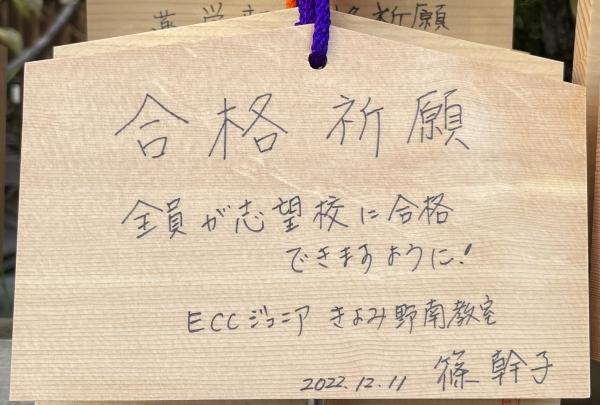 合格祈願
全員が志望校に合格
できますように!
ECCジュニア きよみ野南教室
2022.12.11 篠 幹子